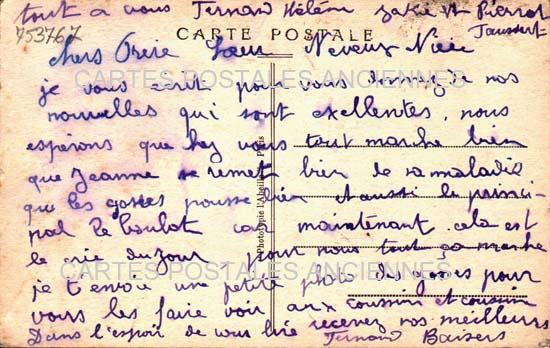 tout a vous Fernand Hélène Jakie et Pierrot
Jaussert
753767
CARTE POSTALE
chers Frère Soeur Neveux Nièce
CARTES POSTALES ANCIENNES
je vous écrit pour vous donnez de nos
nouvelles qui sont exellentes, nous
espérons que chez vous tout marche bien
que Jeanne se remet bien de sa maladie
que les gosses pousse bien et aussi le princi-
pal le boulot car maintenant cela est
le crie du jour pour nous tout ca marche
CARTES POSTALES ANCIENNES
je t'envoie une petite photo des gosses pour
vous les faire voir aux cousins et cousin
Dans l'espoir de vous lire recevez nos meilleurs
Fernand Baisers
Phototypie l'Abeille, Paris